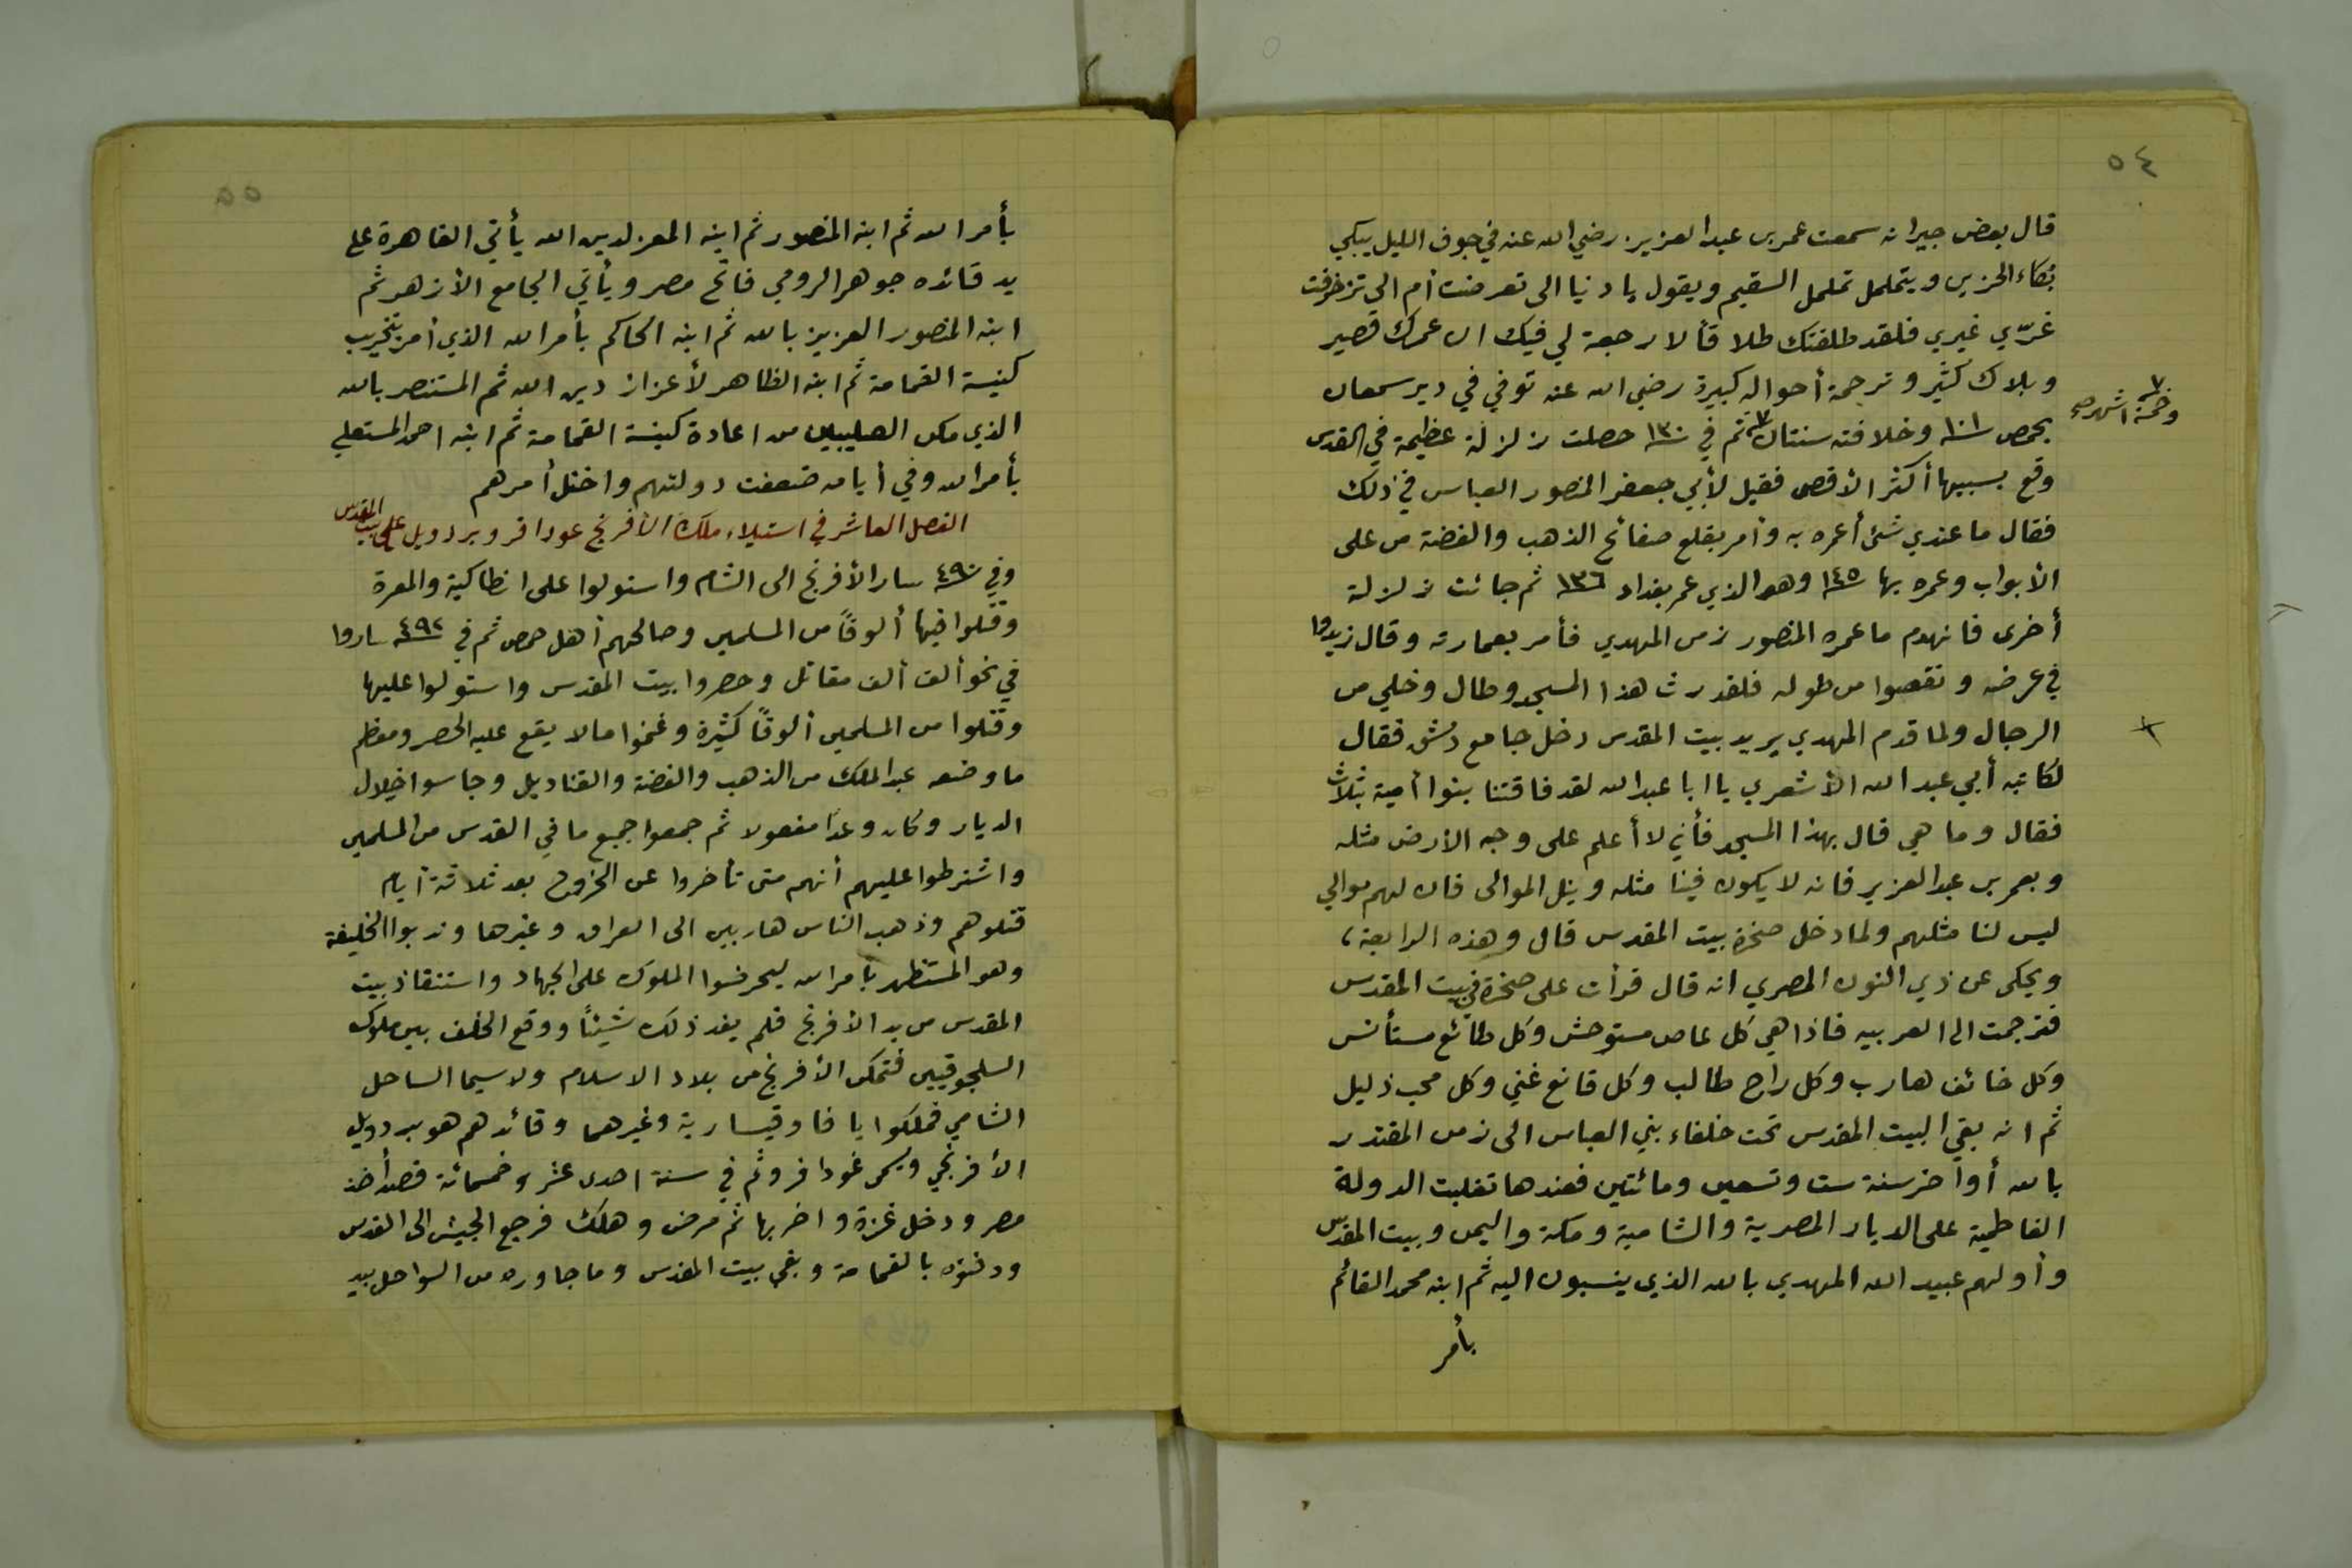 ٥٤
قال بعض جيرانه سمعت عمر بن عبد العزيز رضي الله عنه في جوف الليل يبكي
بكاء الحزين ويتململ تململ السقيم ويقول يا دنيا الي تعرضت أم الي تزخرفت
غرّي غيري فلقد طلقتك طلاقاً لا رجعة لي فيك ان عمرك قصير
وبلاك كثير وترجمة أحواله كبيرة رضي الله عنه توفي في دير سمعان
وخمسة اشهر صح
بحمص سنة ١٠١ وخلافته سنتان ثم في سنة ١٣٠ حصلت زلزلة عظيمة في القدس
وقع بسببها أكثر الأقصى فقيل لأبي جعفر المنصور العباس في ذلك
فقال ما عندي شئ أعمره به وأمر بقلع صفائح الذهب والفضة من على
الأبواب وعمره بها سنة ١٤٥ وهو الذي عمر بغداد ١٣٦ ثم جائت زلزلة
أخرى فانهدم ما عمره المنصور زمن المهدي فأمر بعمارته وقال زيدوا
في عرضه ونقصوا من طوله فلقد رث هذا المسجد وطال وخلي من
الرجال ولما قدم المهدي يريد بيت المقدس دخل جامع دمشق فقال
لكاتبه أبي عبد الله الأشعري يا ابا عبد الله لقد فاقتنا بنوا أمية بثلاث
فقال وما هي قال بهذا المسجد فأني لا أعلم على وجه الأرض مثله
وبعمر بن عبد العزيز فانه لا يكون فينا مثله وبنل الموالى فان لهم موالي
ليس لنا مثلهم ولما دخل صخرة بيت المقدس قال وهذه الرابعة،
ويحكى عن ذي النون المصري انه قال قرأت على صخرة في بيت المقدس
فترجمت الى العربيه فاذا هي كل عاص مستوحش وكل طائع مستأنس
وكل خائف هارب وكل راج طالب وكل قانع غني وكل محب ذليل
ثم انه بقي البيت المقدس تحت خلفاء بني العباس الى زمن المقتدر
بالله أواخر سنة ست وتسعين ومائتين فعندها تغلبت الدولة
الفاطمية على الديار المصرية والشامية ومكة واليمن وبيت المقدس
وأولهم عبيد الله المهدي بالله الذي ينسبون اليه ثم ابنه محمد القائم
بأمر
٥٥
بأمر الله ثم ابنه المنصور ثم ابنه المعز لدين الله يأتي القاهرة على
يد قائده جوهر الرومي فاتح مصر ويأتي الجامع الأزهر ثم
ابنه المنصور العزيز بالله ثم ابنه الحاكم بأمر الله الذي أمر بتخريب
كنيسة القمامة ثم ابنه الظاهر لأعزاز دين الله ثم المستنصر بالله
الذي مكن الصليبيين من اعادة كنيسة القمامة ثم ابنه احمد المستعلي
بأمر الله وفي أيامه ضعفت دولتهم واختل أمرهم
الفصل العاشر في استيلاء ملك الأفرنج عودافر وبردويل على بيت المقدس
وفي سنة ٤٩٠ سار الأفرنج الى الشام واستولوا على انطاكية والمعرة
وقتلوا فيها ألوفاً من المسلمين وصالحهم أهل حمص ثم في سنة ٤٩٢ ساروا
في نحو ألف ألف مقاتل وحصروا بيت المقدس واستولوا عليها
وقتلوا من المسلمين ألوفاً كثيرة وغنموا مالا يقع عليه الحصر ومعظم
ما وضعه عبد الملك من الذهب والفضة والقناديل وجاسوا خلال
الديار وكان وعدًا مفعولا ثم جمعوا جميع ما في القدس من المسلمين
واشترطوا عليهم أنهم متى تأخروا عن الخروج بعد ثلاثة أيام
قتلوهم وذهب الناس هاربين الى العراق وغيرها وندبوا الخليفة
وهو المستظهر بأمر الله ليحرضوا الملوك على الجهاد واستنقاذ بيت
المقدس من يد الأفرنج فلم يفد ذلك شيئاً ووقع الخلف بين ملوك
السلجوقيين فتمكن الأفرنج من بلاد الاسلام ولا سيما الساحل
الشامي فملكوا يافا وقيسارية وغيرهما وقائدهم هو بردويل
الأفرنجي ويسمى غودافرو ثم في سنة احدى عشر وخمسمائة قصد أخذ
مصر ودخل غزة واخربها ثم مرض وهلك فرجع الجيش الى القدس
ودفنوه بالقمامة وبقي بيت المقدس وما جاوره من السواحل بيد